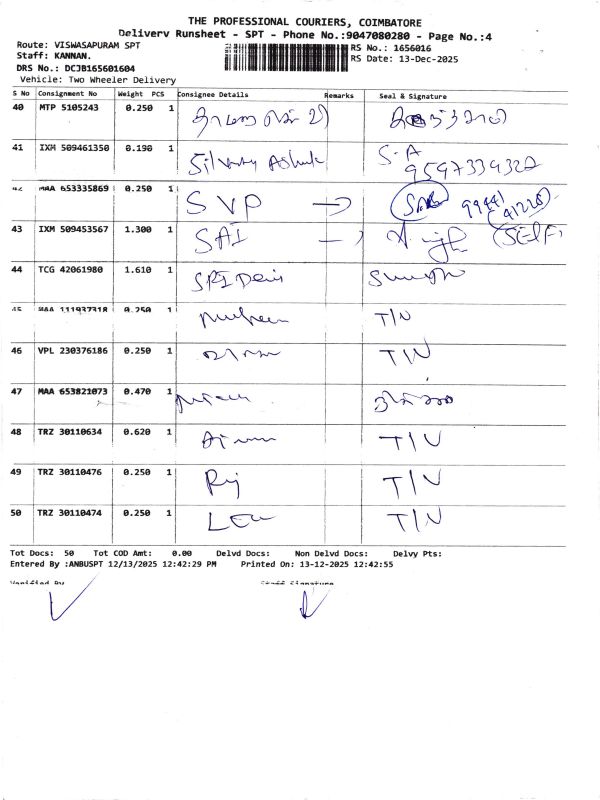 THE PROFESSIONAL COURIERS, COIMBATORE
Delivery Runsheet - SPT - Phone No.:9047080280 - Page No.:4
Route: VISWASAPURAM SPT
RS No.: 1656016
Staff: KANNAN.
RS Date: 13-Dec-2025
DRS No.: DCJB165601604
Vehicle: Two Wheeler Delivery
S No Consignment No Weight PCS Consignee Details Remarks Seal & Signature
40 MTP 5105243 0.250 1
41 IXM 509461350 0.190 1 S.A
9597339322
42 MAA 653335869 0.250 1 SVP
43 IXM 509453567 1.300 1 SAI (SELF)
44 TCG 42061980 1.610 1 SRI Devi
45 MAA 111937318 0.250 1 T/N
46 VPL 230376186 0.250 1 T/N
47 MAA 653821073 0.470 1
48 TRZ 30110634 0.620 1 T/N
49 TRZ 30110476 0.250 1 T/N
50 TRZ 30110474 0.250 1 T/N
Tot Docs: 50 Tot COD Amt: 0.00 Delvd Docs: Non Delvd Docs: Delvy Pts:
Entered By :ANBUSPT 12/13/2025 12:42:29 PM Printed On: 13-12-2025 12:42:55
Verified By Staff Signature